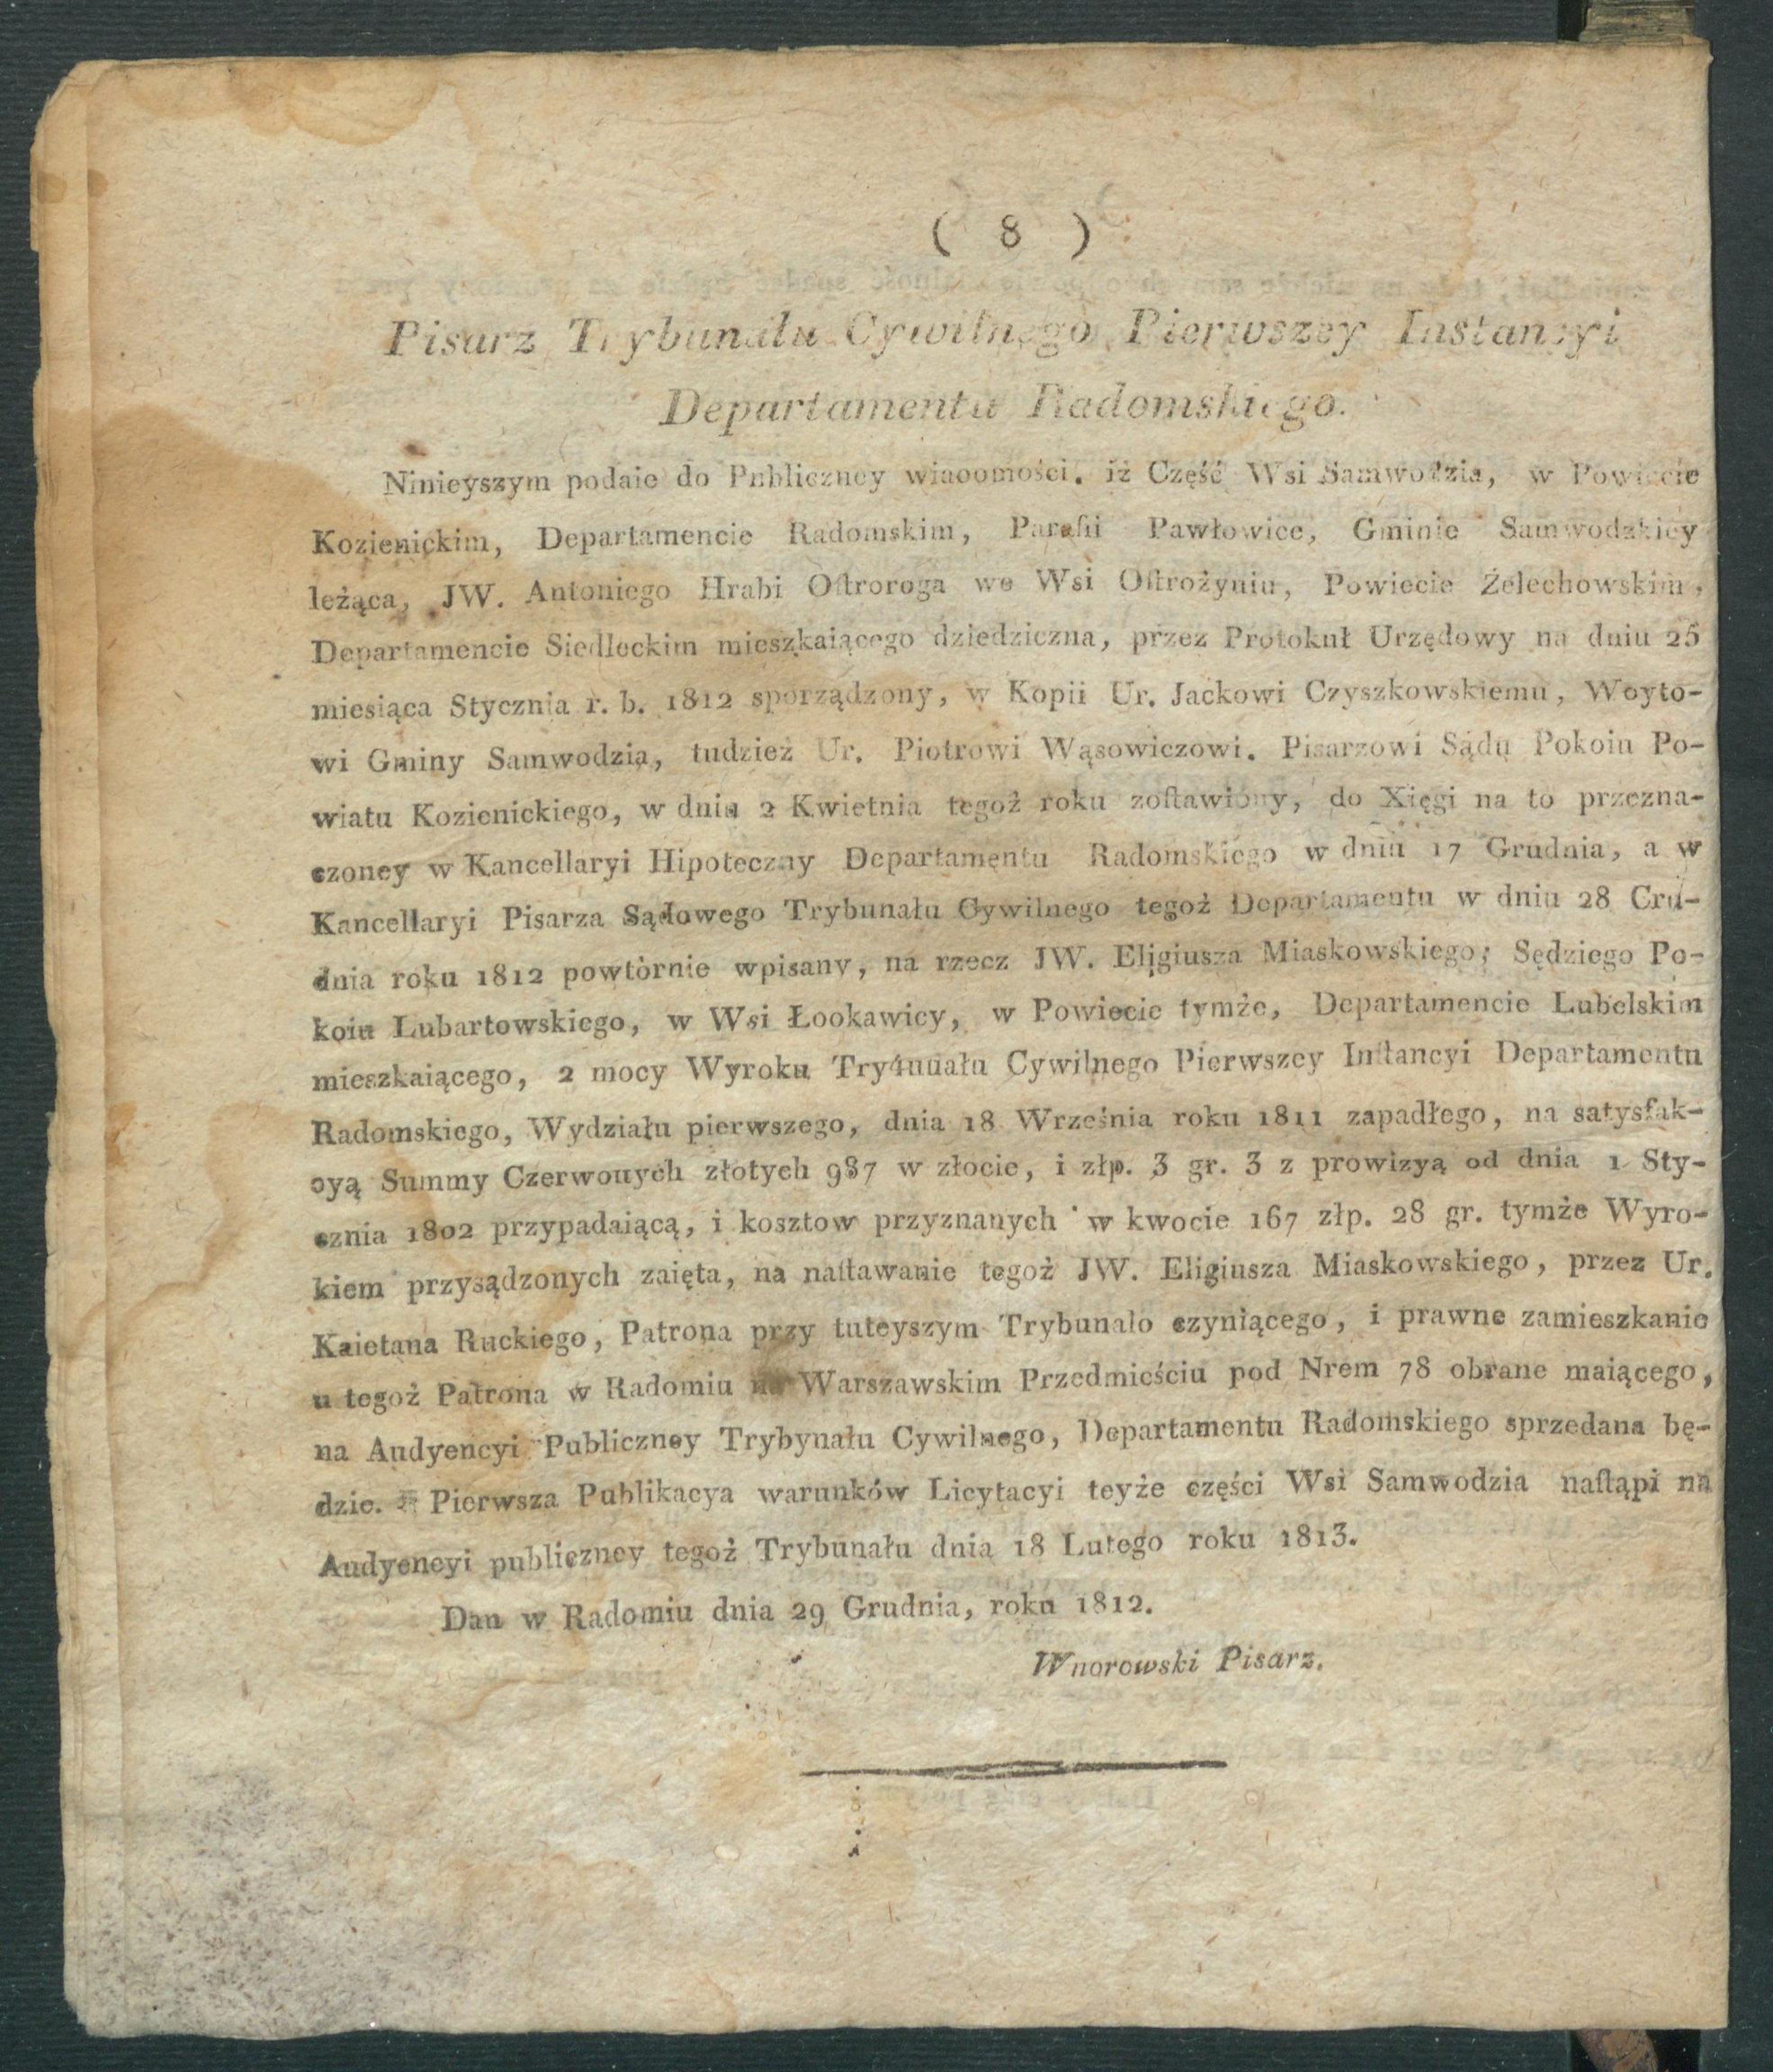 ( 8 )
Pisarz Trybunału Cywilnego Pierwszey Instancyi
Departamentu Radomskiego.
Ninieyszym podaie do Publiczney wiaoomości. iż Część Wsi Samwodzia, w Powiecie
Kozienickim, Departamencie Radomskim, Parafii Pawłowice, Gminie Samwodzkiey
leżąca, JW. Antoniego Hrabi Oſtroroga we Wsi Oſtrożyniu, Powiecie Żelechowskim,
Departamencie Siedleckim mieszkaiącego dziedziczna, przez Protokuł Urzędowy na dniu 25
miesiąca Stycznia r. b. 1812 sporządzony, w Kopii Ur. Jackowi Czyszkowskiemu, Woyto-
wi Gminy Samwodzia, tudzież Ur. Piotrowi Wąsowiczowi. Pisarzowi Sądu Pokoiu Po-
wiatu Kozienickiego, w dniu 2 Kwietnia tegoż roku zoſtawiony, do Xięgi na to przezna-
czoney w Kancellaryi Hipoteczny Departamentu Radomskiego w dniu 17 Grudnia, a w
Kancellaryi Pisarza Sądowego Trybunału Cywilnego tegoż Departamentu w dniu 28 Cru-
dnia roku 1812 powtòrnie wpisany, na rzecz JW. Eligiusza Miaskowskiego; Sędziego Po-
koiu Lubartowskiego, w Wsi Łookawicy, w Powiecie tymże, Departamencie Lubelskim
mieszkaiącego, 2 mocy Wyroku Try4unału Cywilnego Pierwszey Inſtancyi Departamentu
Radomskiego, Wydziału pierwszego, dnia 18 Września roku 1811 zapadłego, na satysfak-
cyą Summy Czerwonych złotych 987 w złocie, i złp. 3 gr. 3 z prowizyą od dnia 1 Sty-
cznia 1802 przypadaiącą, i kosztow przyznanych w kwocie 167 złp. 28 gr. tymże Wyro-
kiem przysądzonych zaięta, na naſtawanie tegoż JW. Eligiusza Miaskowskiego, przez Ur.
Kaietana Ruckiego, Patrona przy tuteyszym Trybunalo czyniącego, i prawne zamieszkanie
u tegoż Patrona w Radomiu na Warszawskim Przedmieściu pod Nrem 78 obrane maiącego,
na Audyencyi Publiczney Trybynału Cywilnego, Departamentu Radomskiego sprzedana bę-
dzie. Pierwsza Publikacya warunków Licytacyi teyże części Wsi Samwodzia naſtąpi na
Audyencyi publiczney tegoż Trybunału dnia 18 Lutego roku 1813.
Dan w Radomiu dnia 29 Grudnia, roku 1812.
Wnorowski Pisarz.